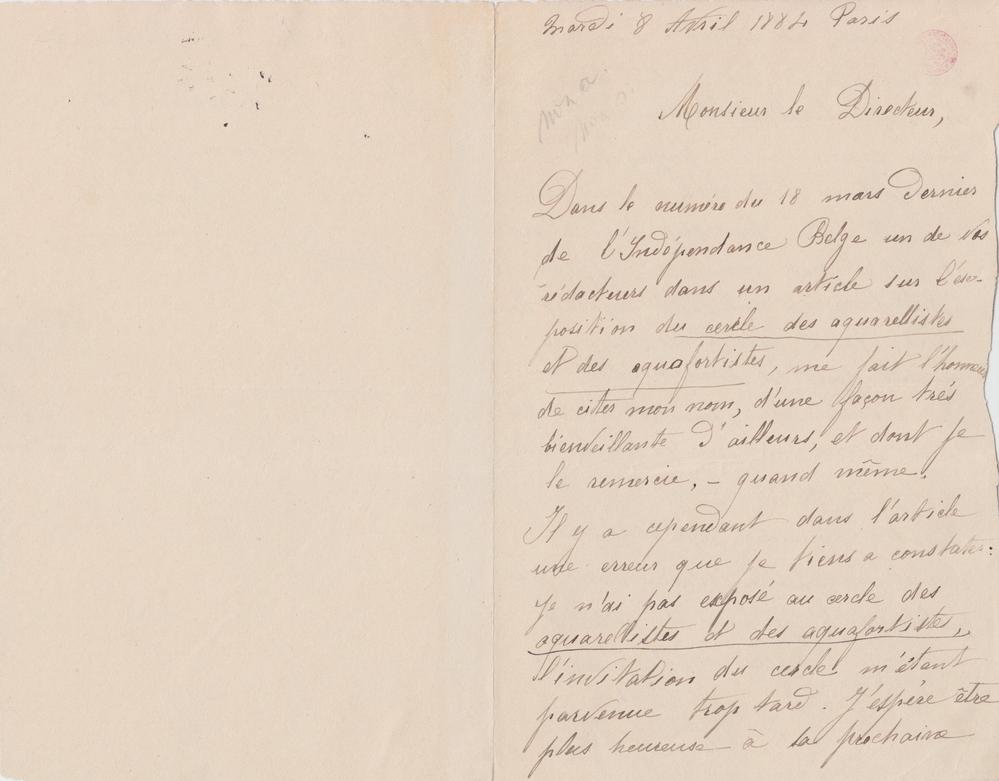 Mardi 8 Avril 1884 Paris
Monsieur le Directeur,
Dans le numéro du 18 mars dernier
de l'Indépendance Belge un de vos
rédacteurs dans un article sur l'ex-
position du cercle des aquarellistes
et des aquafortistes, me fait l'honneur
de citer mon nom, d'une façon très
bienveillante d'ailleurs, et dont je
le remercie, – quand même.
Il y a cependant dans l'article
une erreur que je tiens a constater:
Je n'ai pas exposé au cercle des
aquarellistes et des aquafortistes,
l'invitation du cercle m'étant
parvenue trop tard. J'espère être
plus heureuse à la prochaine